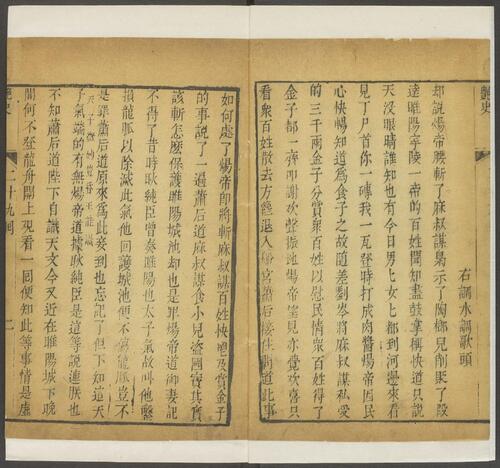 艷史
右調水調歌頭
却說煬帝腰斬了麻叔謀梟示了陶榔兒削職了段
達睢陽寧陵一帶的百姓聞知盡鼓掌稱快道只說
天沒眼睛誰知也有今日男男女女都到河邊來看
見丁尸首你一磚我一瓦登時打成肉醬煬帝因民
心快暢知道為食子之故隨差劉岑將麻叔謀私愛
的三千兩金子分賞衆百姓以慰民情衆百姓得了
金子都一齊叩謝次聲振地煬帝望見亦覺歡喜只
看衆百姓散去方纔退入後宮蕭后接住問道此事
如何處了煬帝即將斬麻叔謀百姓快暢及賞金子
的事說了一遍蕭后道麻叔謀食小兒盜國寶其實
該斬怎麼保護睢陽城池却也是罪煬帝道御妻記
不得了昔時耿純臣曾奏睢陽也太子氣故叫他鑿
損龍脈以除滅此氣他回護城池便不鑿龍脈豈不
是罪蕭后道原來爲此妾到也忘記了但不知這天
子氣端的有無煬帝道據耿純臣是這等說連朕也
不知蕭后道陛下自識天文今又近在睢陽城下晚
間何不登龍舟閣上觀看一回便知此等事情是虛
艷史
二十九囘
二